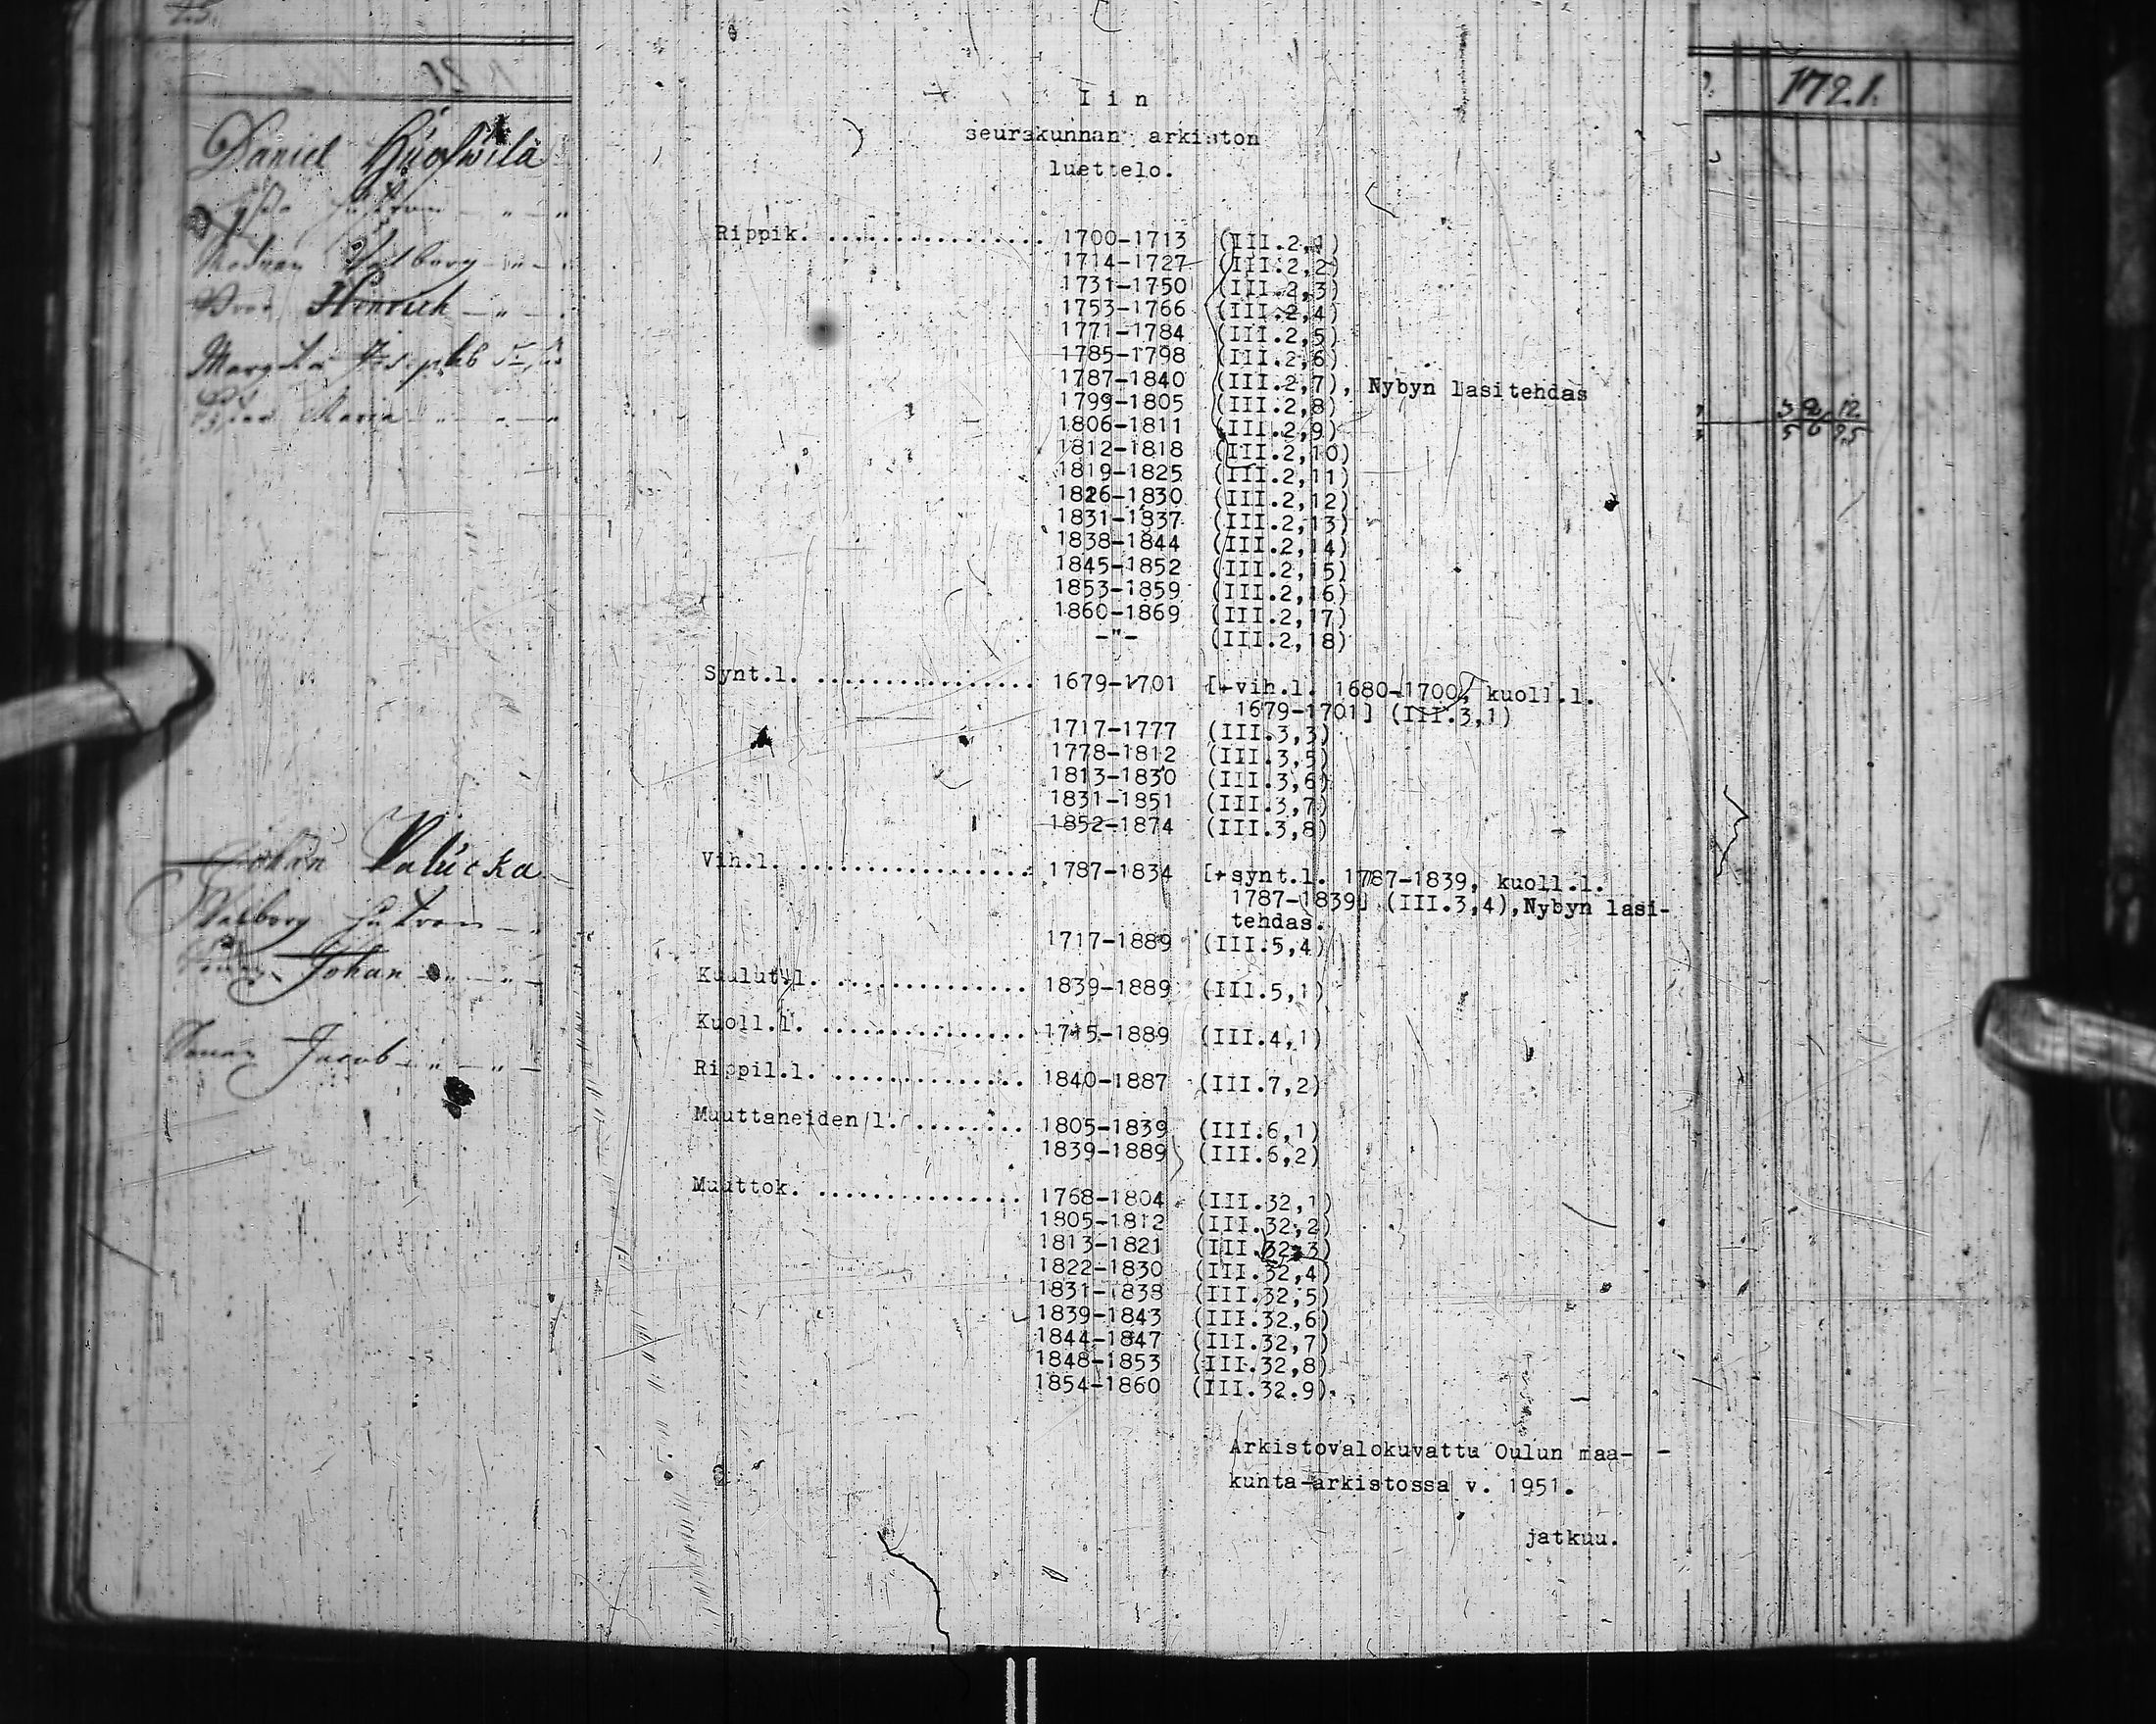 Daniel
Hinrich
Maria
Johan
Walborg
Johan
Jacob
I i n
seurakunnan arkiston
luettelo.
Rippik. ................ 1700-1713 (III.2,1)
1714-1727 (III.2,2)
1731-1750 (III.2,3)
1753-1766 (III.2,4)
1771-1784 (III.2,5)
1785-1798 (III.2,6)
1787-1840 (III.2,7), Nybyn lasitehdas
1799-1805 (III.2,8)
1806-1811 (III.2,9)
1812-1818 (III.2,10)
1819-1825 (III.2,11)
1826-1830 (III.2,12)
1831-1837 (III.2,13)
1838-1844 (III.2,14)
1845-1852 (III.2,15)
1853-1859 (III.2,16)
1860-1869 (III.2,17)
-"- (III.2,18)
Synt.l. ................ 1679-1701 [+vih.l. 1680-1700, kuoll.l.
1679-1701] (III.3,1)
1717-1777 (III.3,3)
1778-1812 (III.3,5)
1813-1830 (III.3,6)
1831-1851 (III.3,7)
1852-1874 (III.3,8)
Vih.l. ................. 1787-1834 [+synt.l. 1787-1839, kuoll.l.
1787-1839] (III.3,4),Nybyn lasi-
tehdas.
1717-1889 (III.5,4)
Kuulut.l. .............. 1839-1889 (III.5,1)
Kuoll.l. ............... 1715-1889 (III.4,1)
Rippil.l. .............. 1840-1887 (III.7,2)
Muuttaneiden l. ........ 1805-1839 (III.6,1)
1839-1889 (III.6,2)
Muuttok. ............... 1768-1804 (III.32,1)
1805-1812 (III.32,2)
1813-1821 (III.32,3)
1822-1830 (III.32,4)
1831-1838 (III.32,5)
1839-1843 (III.32,6)
1844-1847 (III.32,7)
1848-1853 (III.32,8)
1854-1860 (III.32.9).
Arkistovalokuvattu Oulun maa-
kunta-arkistossa v. 1951.
jatkuu.
1721.